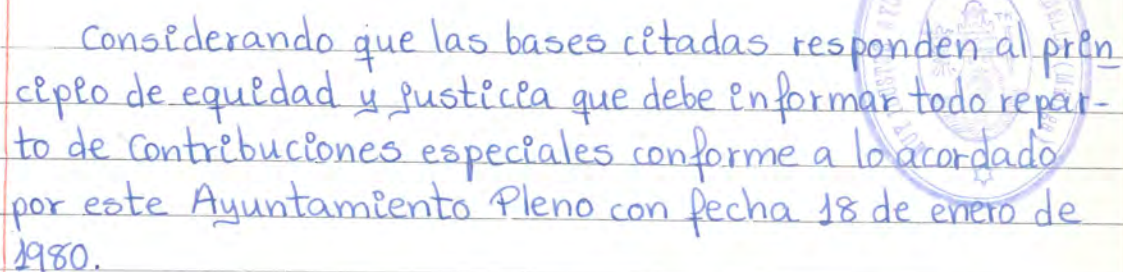 Considerando que las bases citadas responden al prin
cipio de equidad y justicia que debe informar todo repar-
to de Contribuciones especiales conforme a lo acordado
por este Ayuntamiento Pleno con fecha 18 de enero de
1980.